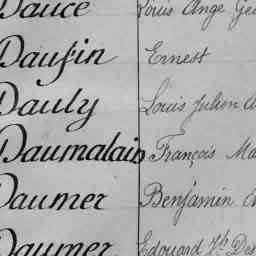 Dauce Louis Ange
Daufin Ernest
Dauly Louis Julien
Daumalain François
Daumer Benjamin
Daumer Edouard